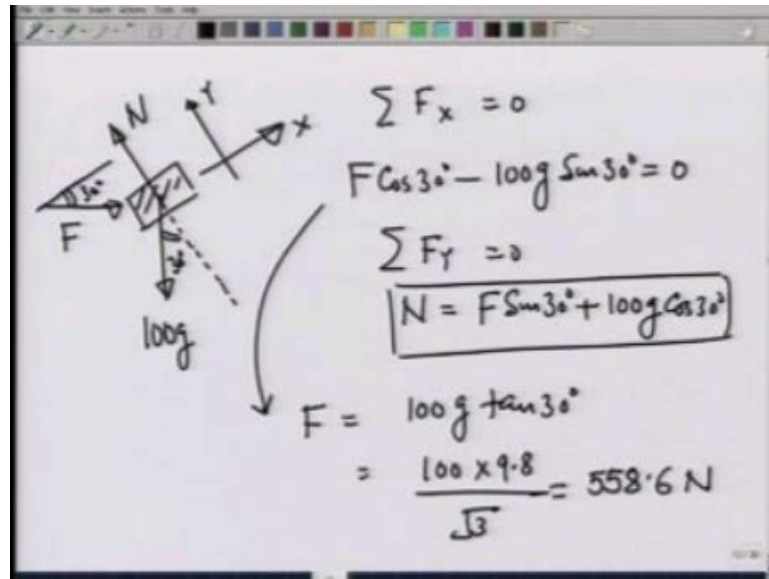 N
Y
X
30°
F
30°
100g
∑ Fx = 0
F Cos30° - 100g Sin30° = 0
∑ FY = 0
N = F Sin30° + 100g Cos30°
F = 100g tan30°
= 100 x 9.8 / √3 = 558.6 N